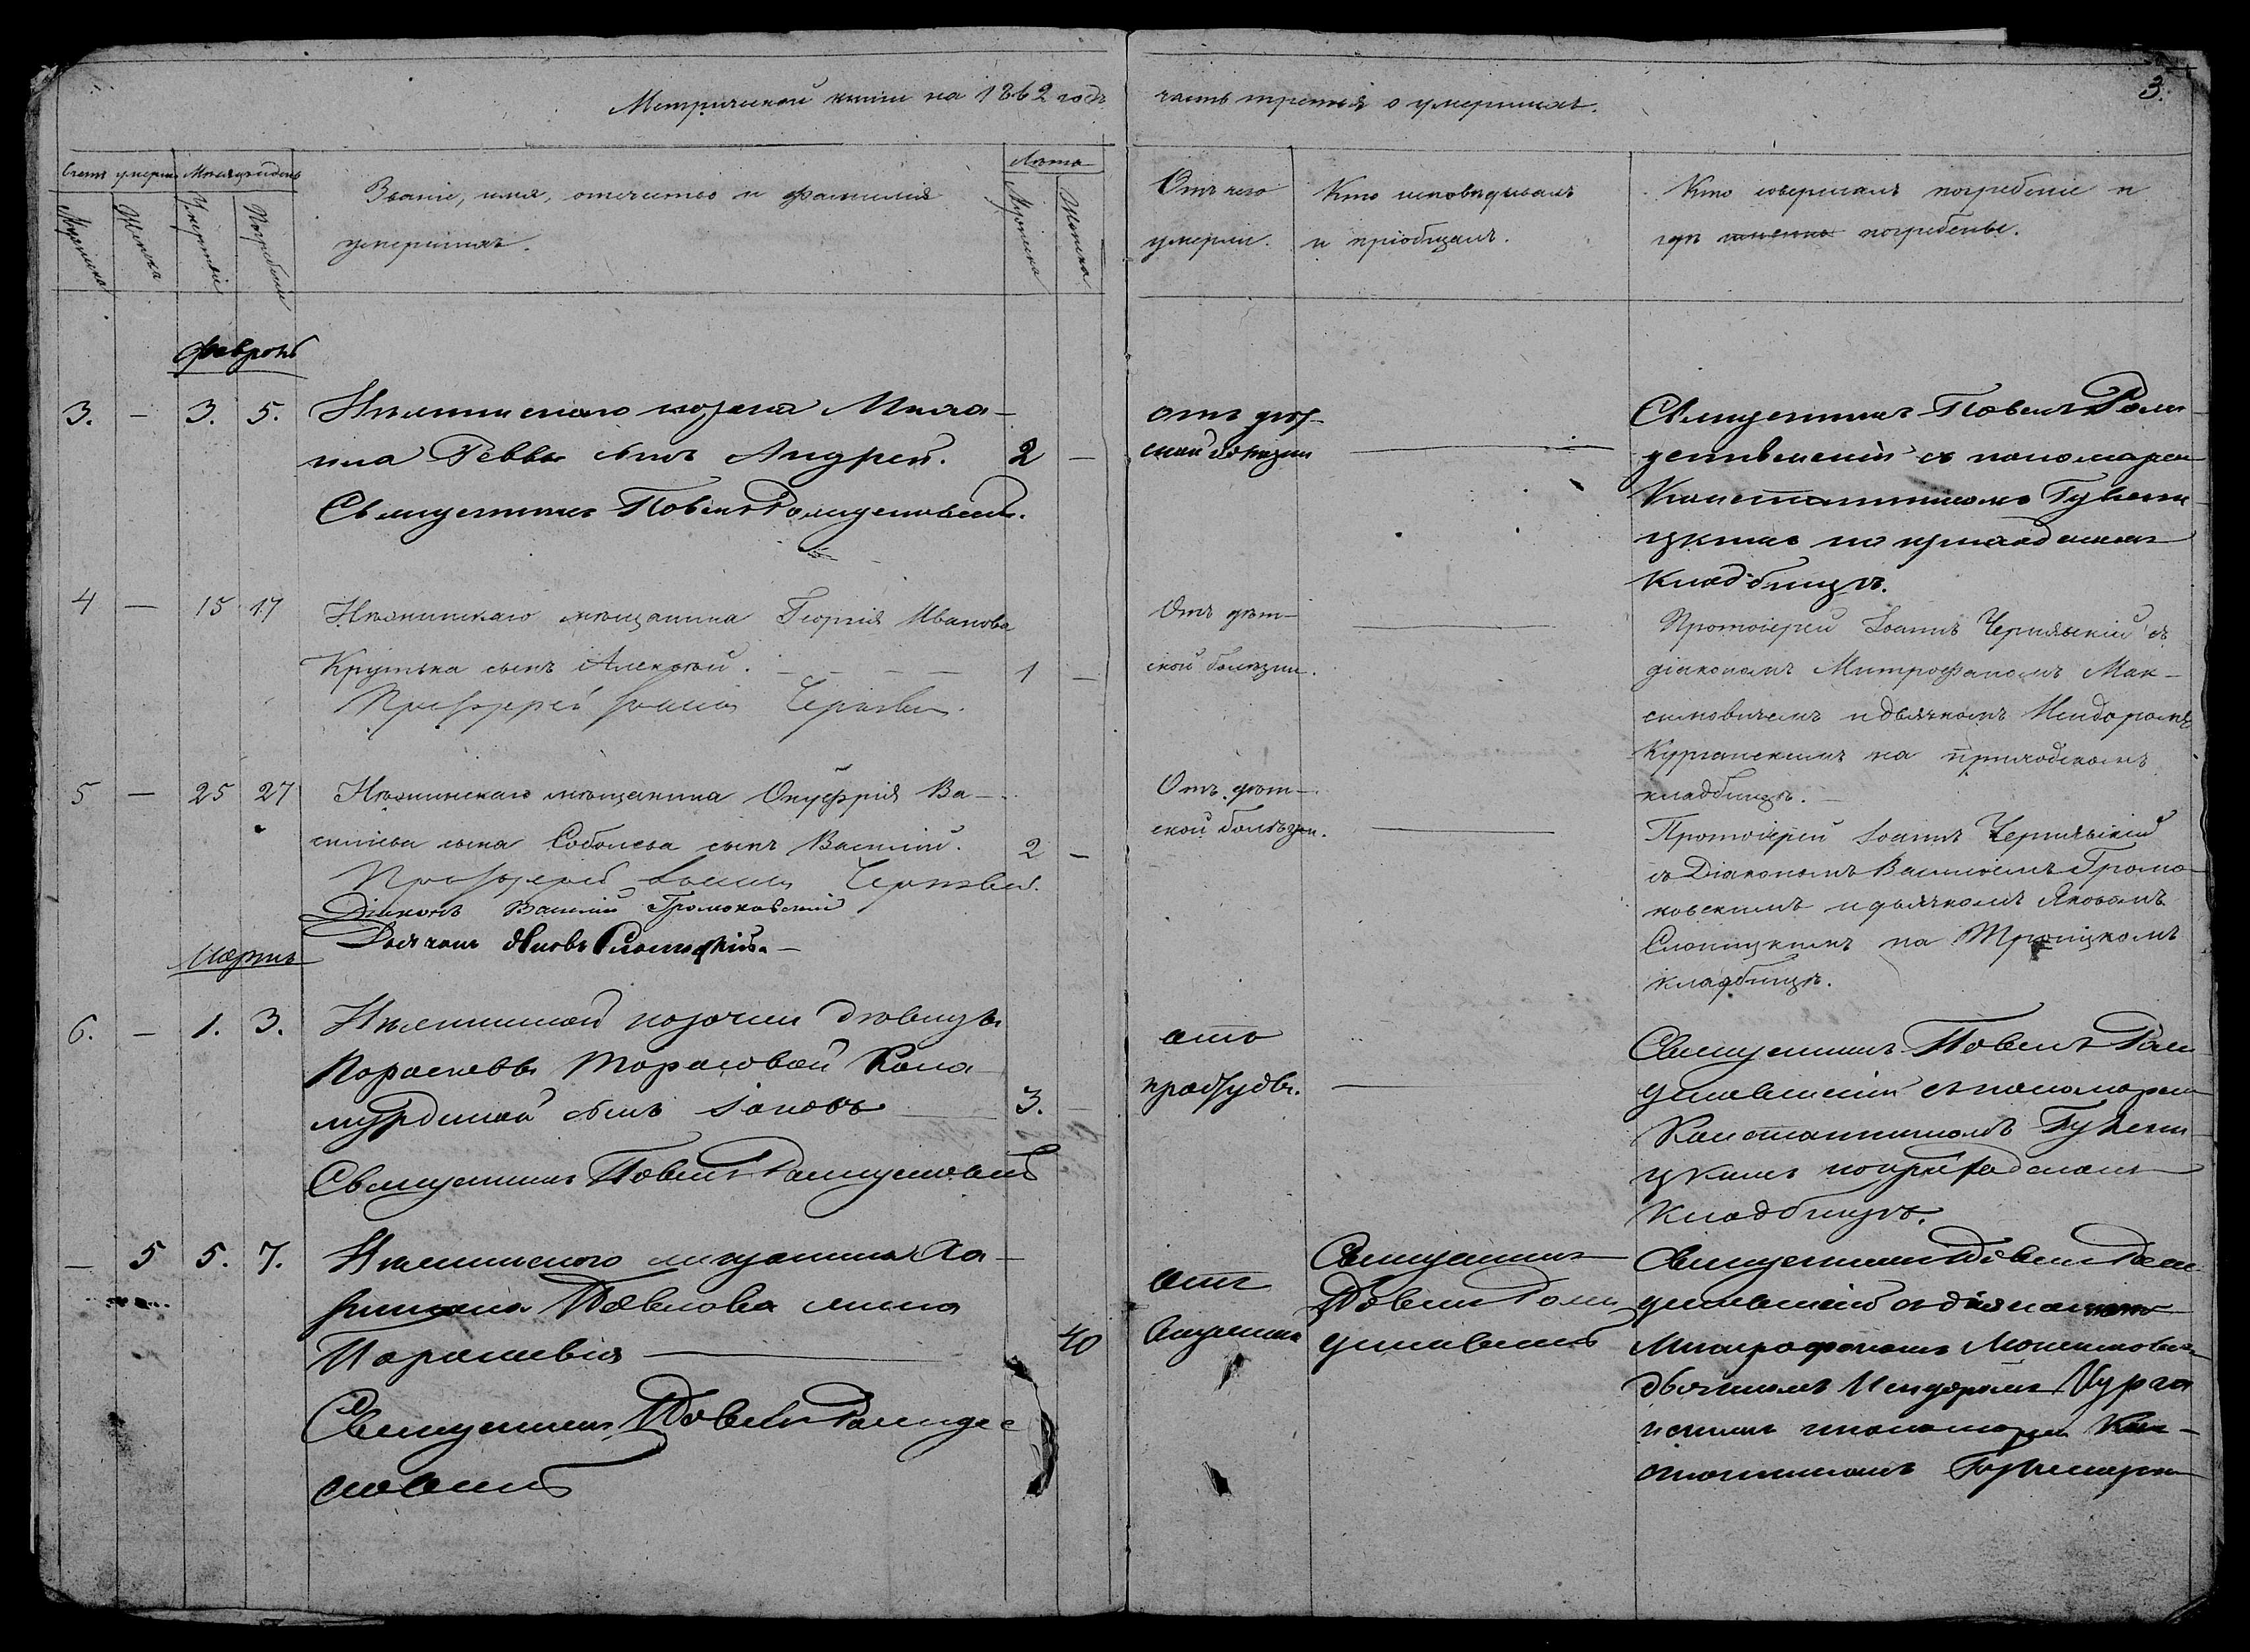 Метрической книги на 1862 годъ
часть третья о умершихъ.
3.
Счетъ умерш. Месяцъ и день
Мужеска
Женска
Умертвіи
Погребеніи
Званіе, имя, отечество и фамилія
умершихъ.
Лѣта
Мужеска
Женска
Отъ чего
умерли.
Кто исповѣдывалъ
и пріобщалъ.
Кто совершалъ погребеніе и
гдѣ погребены.
Февраль
3. – 3. 5. Нѣжинскаго козака Миха-
ила Реввы сынъ Андрей. 2 –
Священникъ Павелъ
отъ дѣт-
ской болезни
Священникъ Павелъ
съ пономаремъ
Константиномъ
на приходскомъ
кладбищѣ.
4 – 15 17 Нѣжинскаго мѣщанина Георгія Иванова
Крутька сынъ Алексѣй. 1 –
Протоіерей Іоаннъ Чернявскій
Отъ дѣт-
ской болѣзни.
Протоіерей Іоаннъ Чернявскій съ
діакономъ Митрофаномъ Мак-
симовичемъ и дьячкомъ Исидоромъ
Курганскимъ на приходскомъ
кладбищѣ.
5 – 25 27 Нѣжинскаго мѣщанина Онуфрія Ва-
сильева сына Соболева сынъ Василій. 2 –
Протоіерей Іоаннъ Чернявскій
Діаконъ Василій Громоковскій
Дьячокъ Яковъ Слоницкій.
Отъ дѣт-
ской болѣзни.
Протоіерей Іоаннъ Чернявскій
съ Діакономъ Василіемъ Громо-
ковскимъ и дьячкомъ Яковомъ
Слоницкимъ на Троицкомъ
кладбищѣ.
Мартъ
6. – 1. 3. Нѣжинской козачки дѣвицы
Параскевы Тарасовой
сынъ Іаковъ 3. –
Священникъ Павелъ
отъ
простуды.
Священникъ Павелъ
съ пономаремъ
Константиномъ
на приходскомъ
кладбищѣ.
– 5 5. 7. Нѣжинского мещанина
Павлова жена
Параскевія 40
Священникъ Павелъ
отъ
Священникъ
Павелъ
Священникъ Павелъ
съ діакономъ
Митрофаномъ Максимовичемъ
дьячкомъ Исидоромъ Курга
нскимъ и пономаремъ Кон-
стантиномъ